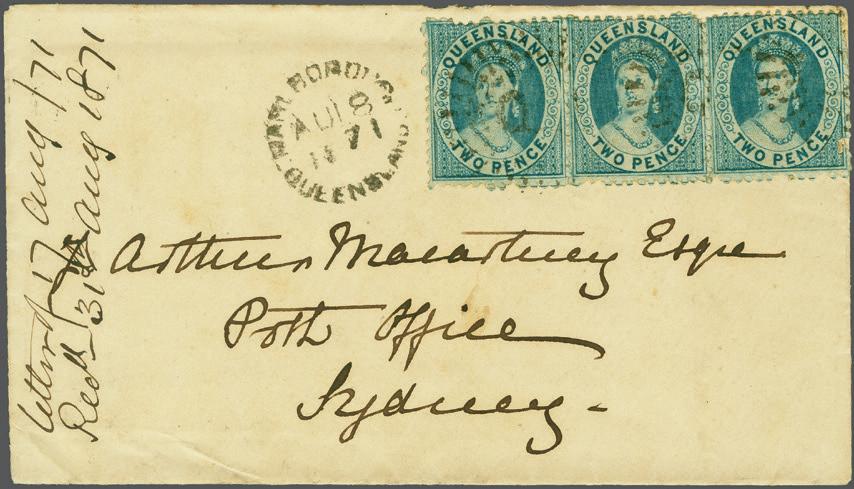 QUEENSLAND
TWO PENCE
QUEENSLAND
TWO PENCE
QUEENSLAND
TWO PENCE
MARYBOROUGH
AU 18
71
QUEENSLAND
Arthur Macartney Esqre
Post Office
Sydney -
letter 17 Aug /71
Recd 31st Aug 1871